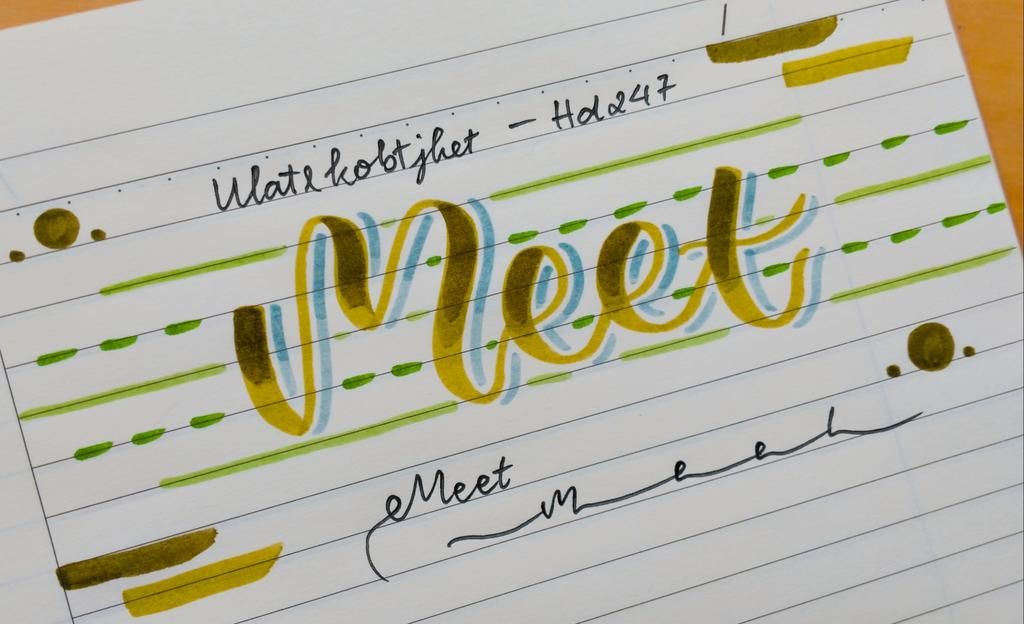 Ulatekobtjhet - Hd247
Meet
Meet
Meet